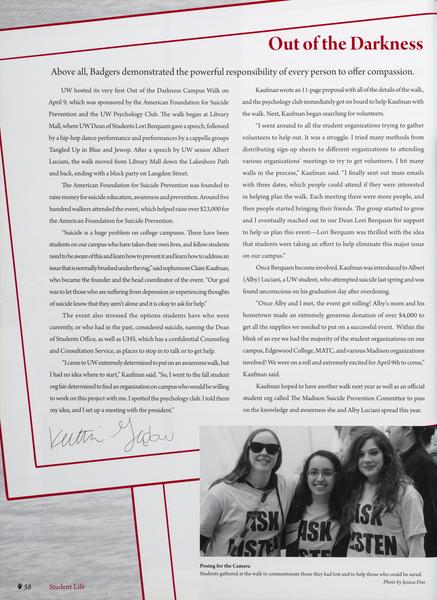 Out of the Darkness
Above all, Badgers demonstrated the powerful responsibility of every person to offer compassion.
UW hosted its very first Out of the Darkness Campus Walk on
April 9, which was sponsored by the American Foundation for Suicide
Prevention and the UW Psychology Club. The walk began at Library
Mall, where UW Dean of Students Lori Berquam gave a speech, followed
by a hip-hop dance performance and performances by a cappella groups
Tangled Up in Blue and Jewop. After a speech by UW senior Albert
Luciani, the walk moved from Library Mall down the Lakeshore Path
and back, ending with a block party on Langdon Street.
The American Foundation for Suicide Prevention was founded to
raise money for suicide education, awareness and prevention. Around five
hundred walkers attended the event, which helped raise over $23,000 for
the American Foundation for Suicide Prevention.
"Suicide is a huge problem on college campuses. There have been
students on our campus who have taken their own lives, and fellow students
need to be aware of this and learn how to prevent it and learn how to address an
issue that is normally brushed under the rug," said sophomore Claire Kaufman,
who became the founder and the head coordinator of the event. "Our goal
was to let those who are suffering from depression or experiencing thoughts
of suicide know that they aren't alone and it is okay to ask for help."
The event also stressed the options students have who were
currently, or who had in the past, considered suicide, naming the Dean
of Students Office, as well as UHS, which has a confidential Counseling
and Consultation Service, as places to stop in to talk or to get help.
"I came to UW extremely determined to put on an awareness walk, but
I had no idea where to start," Kaufman said. "So, I went to the fall student
org fair determined to find an organization on campus who would be willing
to work on this project with me. I spotted the psychology club. I told them
my idea, and I set up a meeting with the president."
Kaufman wrote an 11-page proposal with all of the details of the walk,
and the psychology club immediately got on board to help Kaufman with
the walk. Next, Kaufman began searching for volunteers.
"I went around to all the student organizations trying to gather
volunteers to help out. It was a struggle. I tried many methods from
distributing sign-up sheets to different organizations to attending
various organizations' meetings to try to get volunteers. I hit many
walls in the process," Kaufman said. "I finally sent out mass emails
with three dates, which people could attend if they were interested
in helping plan the walk. Each meeting there were more people, and
then people started bringing their friends. The group started to grow
and I eventually reached out to our Dean Lori Berquam for support
to help us plan this event—Lori Berquam was thrilled with the idea
that students were taking an effort to help eliminate this major issue
on our campus."
Once Berquam become involved, Kaufman was introduced to Albert
(Alby) Luciani, a UW student, who attempted suicide last spring and was
found unconscious on his graduation day after overdosing.
"Once Alby and I met, the event got rolling! Alby's mom and his
hometown made an extremely generous donation of over $4,000 to
get all the supplies we needed to put on a successful event. Within the
blink of an eye we had the majority of the student organizations on our
campus, Edgewood College, MATC, and various Madison organizations
involved! We were on a roll and extremely excited for April 9th to come,"
Kaufman said.
Kaufman hopes to have another walk next year as well as an official
student org called The Madison Suicide Prevention Committee to pass
on the knowledge and awareness she and Alby Luciani spread this year.
ASK
LISTEN
ASK
ASK
LISTEN
Posing for the Camera
Students gathered at the walk to commemorate those they had lost and to help those who could be saved.
Photo by Jessica Fine
58 Student Life